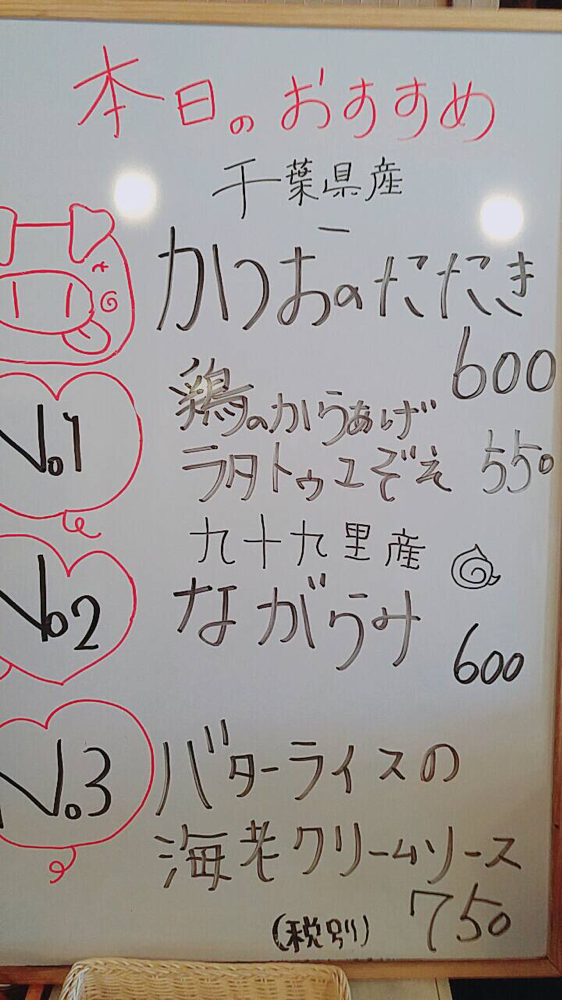 本日のおすすめ
千葉県産
かつおのたたき
600
No.1
鶏のからあげ
ラタトゥユぞえ 550
No.2
九十九里産
ながらみ
600
No.3
バターライスの
海老クリームソース
(税別) 750